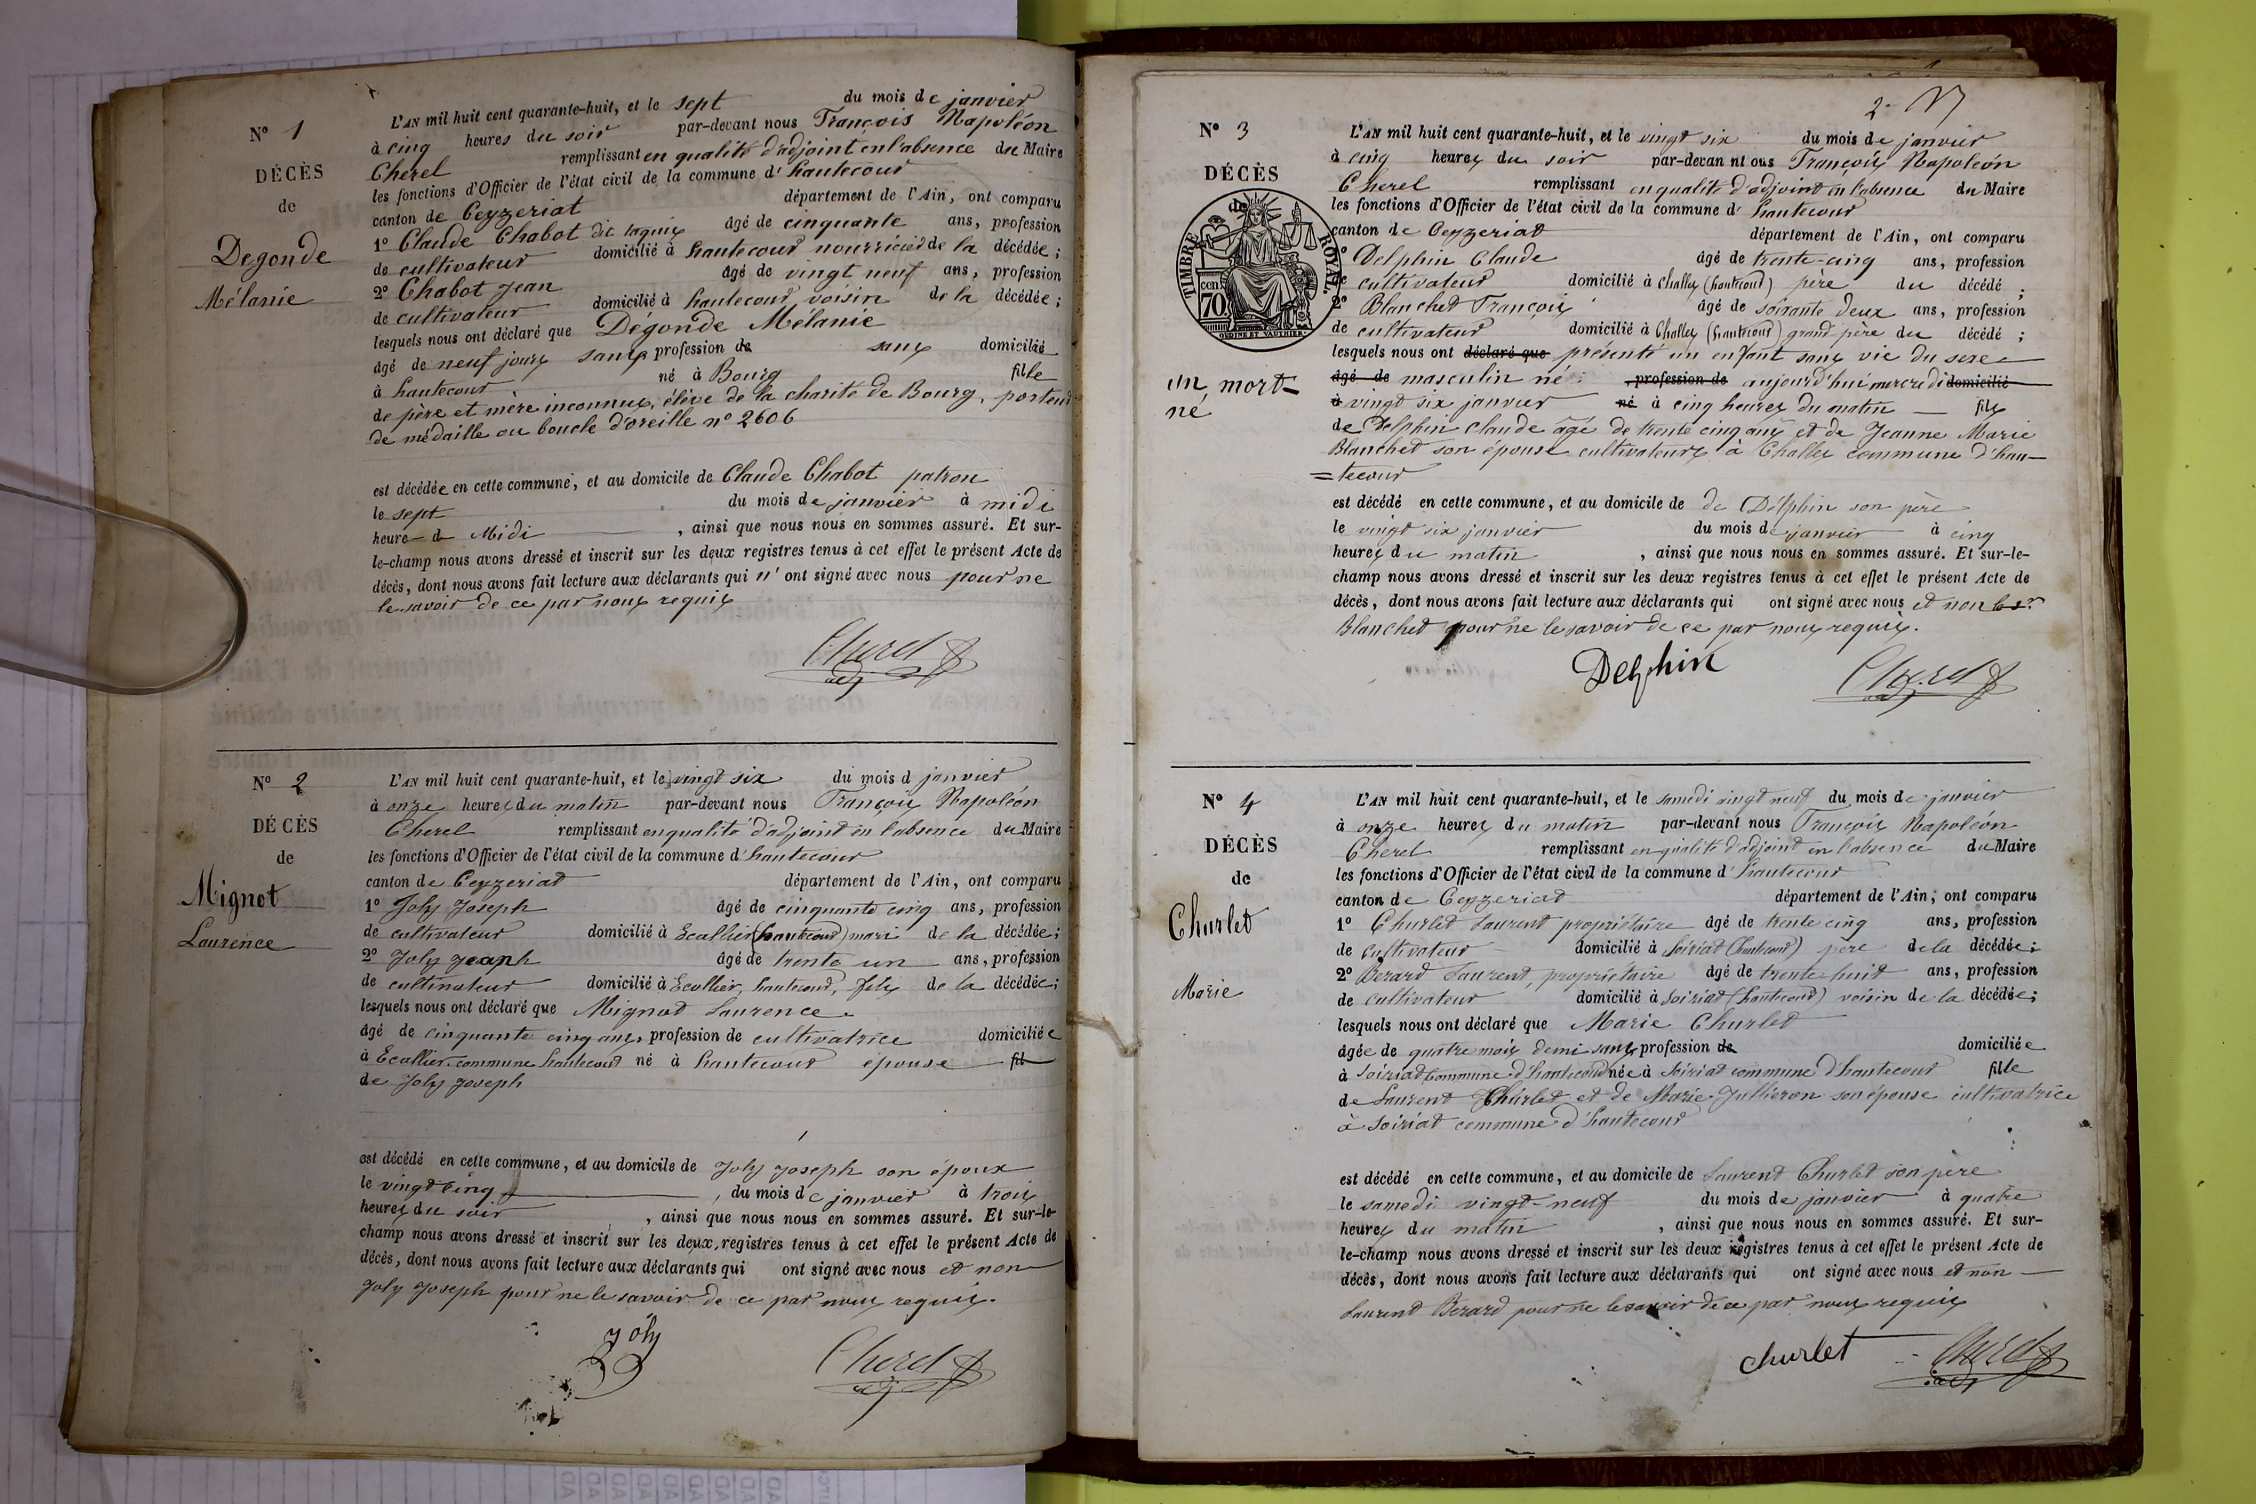 N° 1
DÉCÈS
de
Degonde
Mélanie
L'AN mil huit cent quarante-huit, et le sept du mois de janvier
à cinq heures du soir par-devant nous François Napoléon
Cherel remplissant en qualité d'adjoint en l'absence du Maire
les fonctions d'Officier de l'état civil de la commune d'hautecour
canton de Ceyzeriat département de l'Ain, ont comparu
1° Claude Chabot dit âgé de cinquante ans, profession
de cultivateur domicilié à hautecour nourricier de la décédée;
2° Chabot Jean âgé de vingt neuf ans, profession
de cultivateur domicilié à hautecour voisin de la décédée;
lesquels nous ont déclaré que Dégonde Mélanie
âgé de neuf jours sans profession de sans domiciliée
à hautecour né à Bourg fille
de père et mère inconnus, élève de la charité de Bourg, porteur
de médaille ou boucle d'oreille n° 2606
est décédée en cette commune, et au domicile de Claude Chabot patron
le sept du mois de janvier à midi
heure de Midi, ainsi que nous nous en sommes assuré. Et sur-
le-champ nous avons dressé et inscrit sur les deux registres tenus à cet effet le présent Acte de
décès, dont nous avons fait lecture aux déclarants qui n'ont signé avec nous pour ne
le savoir de ce par nous requis
Cherel
adj
N° 2
DÉCÈS
de
Mignot
Laurence
L'AN mil huit cent quarante-huit, et le vingt six du mois d janvier
à onze heures du matin par-devant nous François Napoléon
Cherel remplissant en qualité d'adjoint en l'absence du Maire
les fonctions d'Officier de l'état civil de la commune d'hautecour
canton de Ceyzeriat département de l'Ain, ont comparu
1° Joly Joseph âgé de cinquante cinq ans, profession
de cultivateur domicilié à Ecallier (hautecour) mari de la décédée;
2° Joly Joseph âgé de trente un ans, profession
de cultivateur domicilié à Ecallier, hautecour, fils de la décédée;
lesquels nous ont déclaré que Mignot Laurence
âgé de cinquante cinq ans, profession de cultivatrice domiciliée
à Ecallier commune hautecour né à hautecour épouse fil
de Joly Joseph
est décédé en cette commune, et au domicile de Joly Joseph son époux
le vingt cinq, du mois de janvier à trois
heures du soir, ainsi que nous nous en sommes assuré. Et sur-le-
champ nous avons dressé et inscrit sur les deux registres tenus à cet effet le présent Acte de
décès, dont nous avons fait lecture aux déclarants qui ont signé avec nous et non
Joly Joseph pour ne le savoir de ce par nous requis.
Joly
Cherel
adj
2
N° 3
DÉCÈS
de
TIMBRE ROYAL
70 cen
un mort-
né
L'AN mil huit cent quarante-huit, et le vingt six du mois de janvier
à cinq heures du soir par-devan nt ous François Napoléon
Cherel remplissant en qualité d'adjoint en l'absence du Maire
les fonctions d'Officier de l'état civil de la commune d'hautecour
canton de Ceyzeriat département de l'Ain, ont comparu
1° Delphin Claude âgé de trente-cinq ans, profession
de cultivateur domicilié à Challes (hautecour) père du décédé;
2° Blanchet François âgé de soixante deux ans, profession
de cultivateur domicilié à Challes (hautecour) grand père du décédé;
lesquels nous ont déclaré que présenté un enfant sans vie du sexe
âgé de masculin né profession de aujourd'hui mercredi domicilié
à vingt six janvier né à cinq heures du matin fils
de Delphin Claude âgé de trente cinq ans et de Jeanne Marie
Blanchet son épouse cultivateurs à Challes commune d'hau-
=tecour
est décédé en cette commune, et au domicile de de Delphin son père
le vingt six janvier du mois de janvier à cinq
heures du matin, ainsi que nous nous en sommes assuré. Et sur-le-
champ nous avons dressé et inscrit sur les deux registres tenus à cet effet le présent Acte de
décès, dont nous avons fait lecture aux déclarants qui ont signé avec nous et non le sr
Blanchet pour ne le savoir de ce par nous requis.
Delphin
Cherel
adj
N° 4
DÉCÈS
de
Churlet
Marie
L'AN mil huit cent quarante-huit, et le samedi vingt neuf du mois de janvier
à onze heures du matin par-devant nous François Napoléon
Cherel remplissant en qualité d'adjoint en l'absence du Maire
les fonctions d'Officier de l'état civil de la commune d'hautecour
canton de Ceyzeriat département de l'Ain, ont comparu
1° Churlet Laurent propriétaire âgé de trente cinq ans, profession
de cultivateur domicilié à Soiriat (hautecour) père de la décédée;
2° Berard Laurent, propriétaire âgé de trente huit ans, profession
de cultivateur domicilié à Soiriat (hautecour) voisin de la décédée;
lesquels nous ont déclaré que Marie Churlet
âgée de quatre mois demi sans profession de domiciliée
à Soiriat commune d'hautecour née à Soiriat commune d'hautecour fille
de Laurent Churlet et de Marie Jullieron son épouse cultivatrice
à Soiriat commune d'hautecour
est décédé en cette commune, et au domicile de Laurent Churlet son père
le samedi vingt-neuf du mois de janvier à quatre
heures du matin, ainsi que nous nous en sommes assuré. Et sur-
le-champ nous avons dressé et inscrit sur les deux registres tenus à cet effet le présent Acte de
décès, dont nous avons fait lecture aux déclarants qui ont signé avec nous et non
Laurent Berard pour ne le savoir de ce par nous requis
Churlet
Cherel
adj